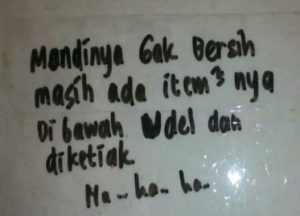 Mandinya Gak Bersih
masih ada item³ nya
Di bawah Udel dan
diketiak
Ha.. ha.. ha..